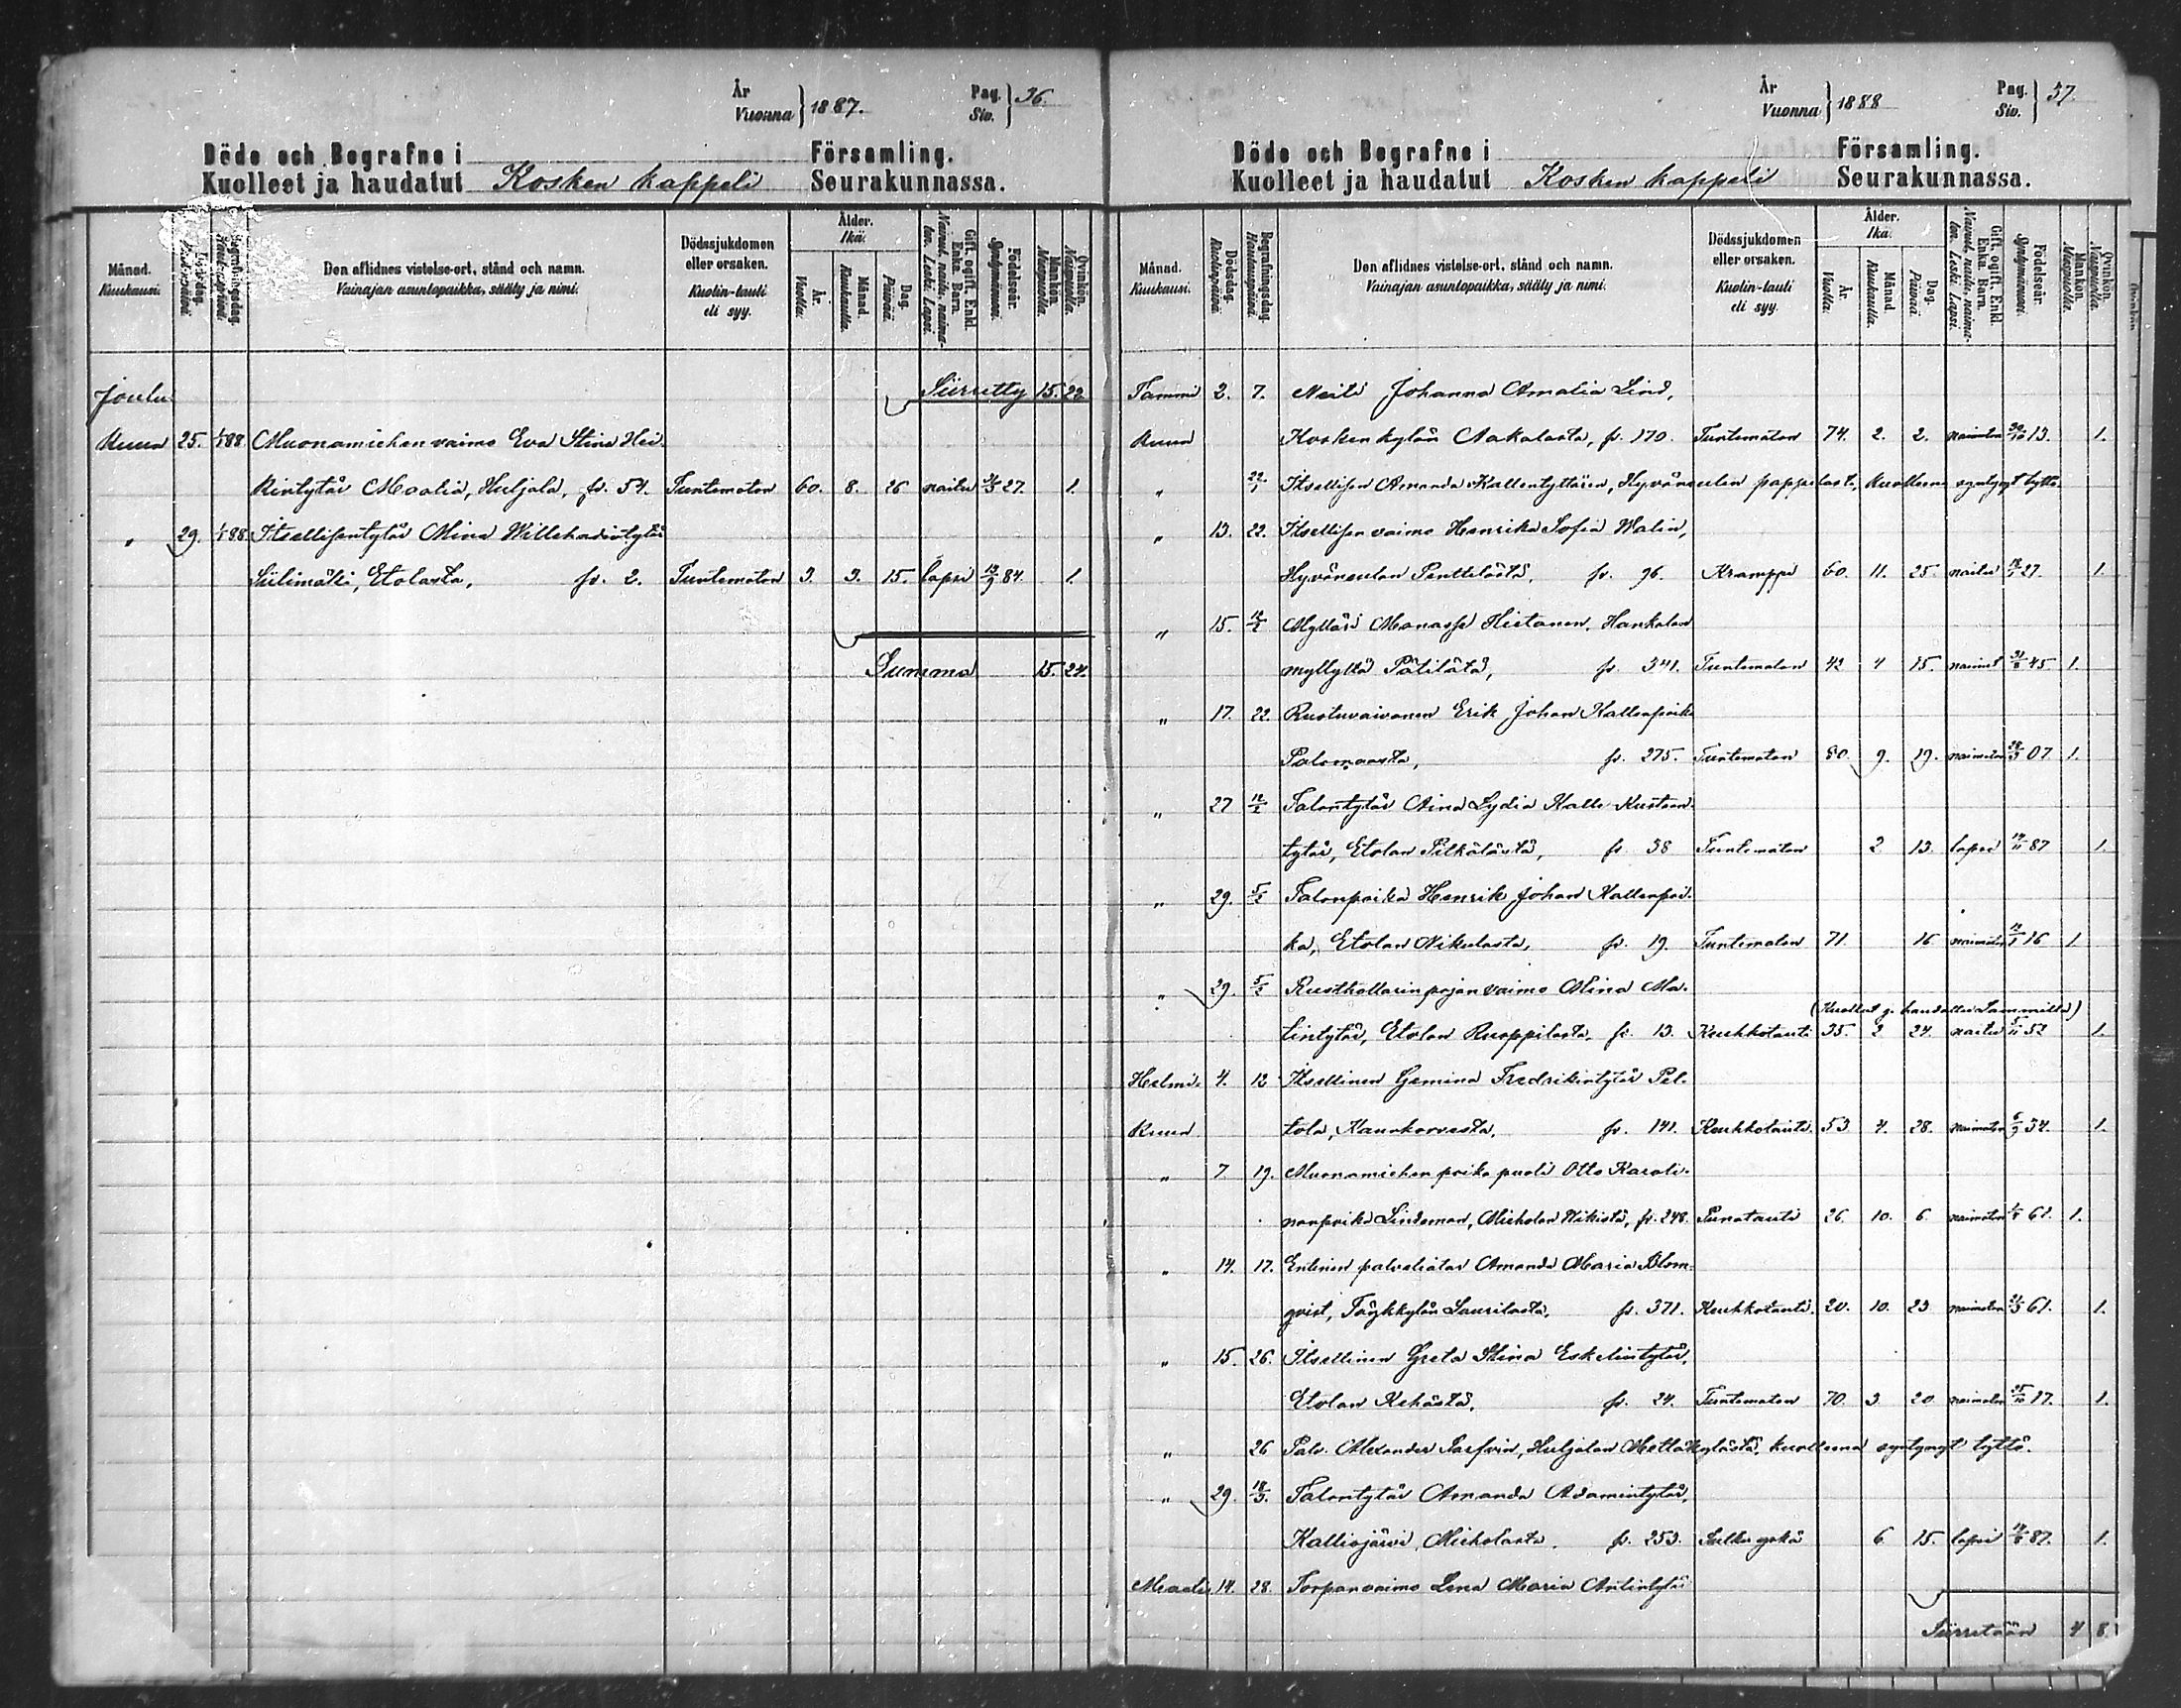 År
Vuonna } 1887.
Pag.
Siv. } 36.
Döde och Begrafne i Församling.
Kuolleet ja haudatut Kosken kappeli Seurakunnassa.
Månad. Kuukausi.
Dödsdag. Kuolinpäivä.
Begrafningsdag. Hautauspäivä.
Den aflidnes vistelse-ort, stånd och namn.
Vainajan asuntopaikka, sääty ja nimi.
Dödssjukdomen eller orsaken.
Kuolin-tauti eli syy.
Ålder. Ikä.
År. Vuotta.
Månad. Kuukautta.
Dag. Päivää.
Gift, ogift, Enkl. Enka. Barn.
Nainut, naitu, naimaton. Leski. Lapsi.
Födelseår. Syntymävuosi.
Mankön. Miespuolta.
Qvinkön. Naispuolta.
Joulu Siirretty 15. 22
Kuun 25. 1/1 88. Muonamiehen vaimo Eva Stina Hei-
kintytär Maalia, Huljala, fv. 54. Tuntematon 60. 8. 26 naitu 27. 1.
" 29. 1/1 88. Itsellisentytär Mina Willehadintytär
Siilimäki, Etolasta, fv. 2. Tuntematon 3. 3. 15. lapsi 14/9 84. 1.
Summa 15. 24.
År
Vuonna } 1888
Pag.
Siv. } 37.
Döde och Begrafne i Församling.
Kuolleet ja haudatut Kosken kappeli Seurakunnassa.
Månad. Kuukausi.
Dödsdag. Kuolinpäivä.
Begrafningsdag. Hautauspäivä.
Den aflidnes vistelse-ort, stånd och namn.
Vainajan asuntopaikka, sääty ja nimi.
Dödssjukdomen eller orsaken.
Kuolin-tauti eli syy.
Ålder. Ikä.
År. Vuotta.
Månad. Kuukautta.
Dag. Päivää.
Gift, ogift, Enkl. Enka. Barn.
Nainut, naitu, naimaton. Leski. Lapsi.
Födelseår. Syntymävuosi.
Mankön. Miespuolta.
Qvinkön. Naispuolta.
Tammi 2. 7. Neiti Johanna Amalia Lind,
Kuun Kosken kylän Aakalasta, fv. 170. Tuntematon 74. 2. 2. naimaton 30/10 13. 1.
" 22/1 Itsellisen Amanda Kallentyttären, Hyväneulan pappilasta, kuolleena syntynyt tyttö.
" 13. 22. Itsellisen vaimo Henrika Sofia Walin,
Hyväneulan Penttilästä, fv. 96. Kramppi 60. 11. 25. naitu 27. 1.
" 15. 12/2 Mylläri Manasse Hietanen, Hankalan
myllyltä Pätilätä, fv. 341. Tuntematon 42 4 15. nainut 31/8 45 1.
" 17. 22. Ruotuvaivanen Erik Johan Kallenpoika
Palomaasta, fv. 275. Tuntematon 80. 9. 19. naimaton 07 1.
" 27 12/2 Talontytär Aina Lydia Kalle Kustaan-
tytär, Etolan Pilkälästä, fv. 38 Tuntematon 2 13. lapsi 14/11 87 1.
" 29. 5/2 Talonpoika Henrik Johan Kallenpoi-
ka, Etolan Nikulasta, fv. 19. Tuntematon 71. 16 naimaton 1 16 1.
" 29. 5/2 Rusthollarin pojan vaimo Mina Ma-
(Kuollut ja haudattu Lammilla)
tintytär, Etolan Ruoppilasta, fv. 13. Keuhkotauti 35. 2 24. naitu 5/11 52 1.
Helmi- 4. 12 Itsellinen Gemina Fredrikintytär Pel-
Kuun tola, Kaurkorvesta, fv. 141. Keuhkotauti. 53 4. 28. naimaton 6/9 34. 1.
" 7. 19. Muonamiehen poika puoli Otto Karoli-
nanpoika Lindeman, Mieholan Hikistä, fv. 248. Punatauti 26 10. 6 naimaton 61. 1.
" 14. 17. Entinen palveliatar Amanda Maria Blom-
qvist, Täykkylän Laurilasta, fv. 371. Keuhkotauti. 20. 10. 23 naimaton 67. 1.
" 15. 26. Itsellinen Greta Stina Eskelintytär,
Etolan Kehästä, fv. 24. Tuntematon 70. 3 20 naimaton 25/10 17. 1.
" 26 Palv. Alexander Parfvin, Huljalan Mettäkylästä, kuolleena syntynyt tyttö.
" 29. 18/3. Talontytär Amanda Adamintytär,
Kalliojärvi, Mieholasta. fv. 253. Salku yskä 6 15. lapsi 87. 1.
Maalis 14. 28. Torpanvaimo Lena Maria Antintytär
Siirretään 4 8.